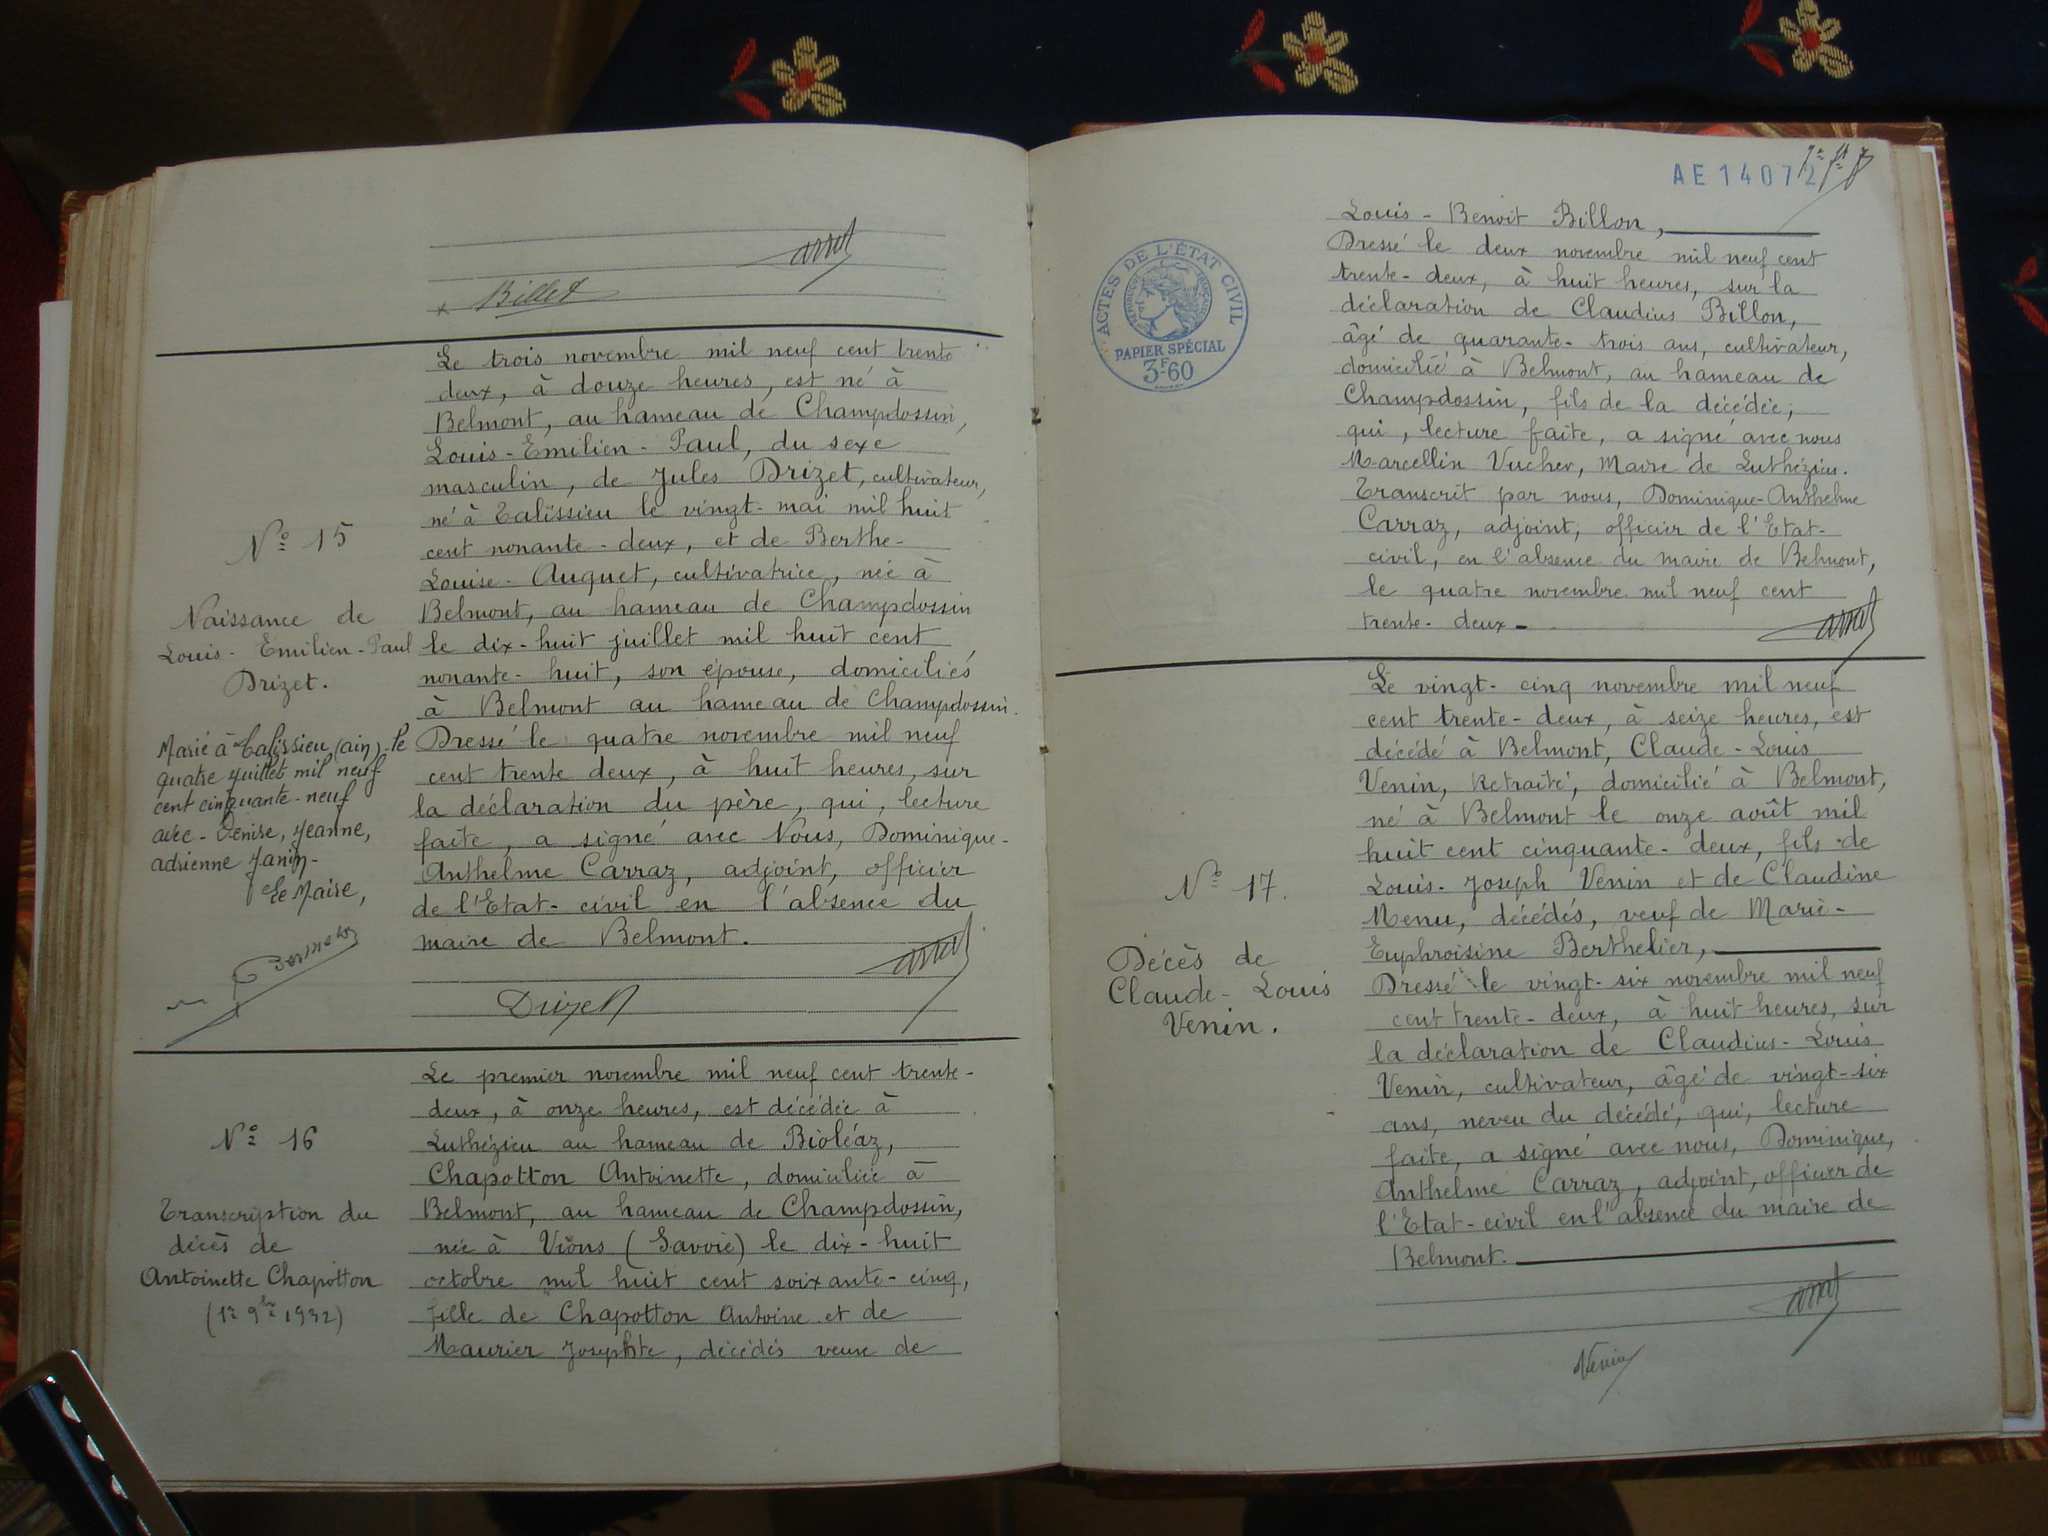 Billet
Le trois novembre mil neuf cent trente
deux, à douze heures, est né à
Belmont, au hameau de Champdossin,
Louis-Emilien-Paul, du sexe
masculin, de Jules Drizet, cultivateur,
né à Talissieu le vingt-mai mil huit
cent nonante-deux, et de Berthe-
Louise-Auguet, cultivatrice, née à
Belmont, au hameau de Champdossin
le dix-huit juillet mil huit cent
nonante-huit, son épouse, domiciliés
à Belmont au hameau de Champdossin.
Dressé le quatre novembre mil neuf
cent trente deux, à huit heures, sur
la déclaration du père, qui, lecture
faite, a signé avec Nous, Dominique-
Anthelme Carraz, adjoint, officier
de l'Etat-civil en l'absence du
maire de Belmont.
Drizet
No 15
Naissance de
Louis-Emilien-Paul
Drizet.
Marié à Talissieu (ain) le
quatre juillet mil neuf
cent cinquante-neuf
avec-Denise, Jeanne,
adrienne Janin-
Le Maire,
No 16
Transcription du
décès de
Antoinette Chapotton
(1er 9bre 1932)
Le premier novembre mil neuf cent trente-
deux, à onze heures, est décédée à
Luthézieu au hameau de Bioléaz,
Chapotton Antoinette, domiciliée à
Belmont, au hameau de Champdossin,
née à Vions (Savoie) le dix-huit
octobre mil huit cent soixante-cinq,
fille de Chapotton Antoine et de
Maurier Josephte, décédés veuve de
AE14072
Louis-Benoit Billon,
Dressé le deux novembre mil neuf cent
trente-deux, à huit heures, sur la
déclaration de Claudius Billon,
âgé de quarante-trois ans, cultivateur,
domicilié à Belmont, au hameau de
Champdossin, fils de la décédée;
qui, lecture faite, a signé avec nous
Marcellin Vucher, Maire de Luthézieu.
Transcrit par nous, Dominique-Anthelme
Carraz, adjoint, officier de l'Etat-
civil, en l'absence du maire de Belmont,
le quatre novembre mil neuf cent
trente-deux-
ACTES DE L'ÉTAT CIVIL
PAPIER SPÉCIAL
3F60
No 17.
Décès de
Claude-Louis
Venin.
Le vingt-cinq novembre mil neuf
cent trente-deux, à seize heures, est
décédé à Belmont, Claude-Louis
Venin, Retraité, domicilié à Belmont,
né à Belmont le onze août mil
huit cent cinquante-deux, fils de
Louis-Joseph Venin et de Claudine
Menu, décédés, veuf de Marie-
Euphroisine Berthelier,
Dressé le vingt-six novembre mil neuf
cent trente-deux, à huit heures, sur
la déclaration de Claudius-Louis
Venin, cultivateur, âgé de vingt-six
ans, neveu du décédé, qui, lecture
faite, a signé avec nous, Dominique,
Anthelme Carraz, adjoint, officier de
l'Etat-civil en l'absence du maire de
Belmont.
Venin